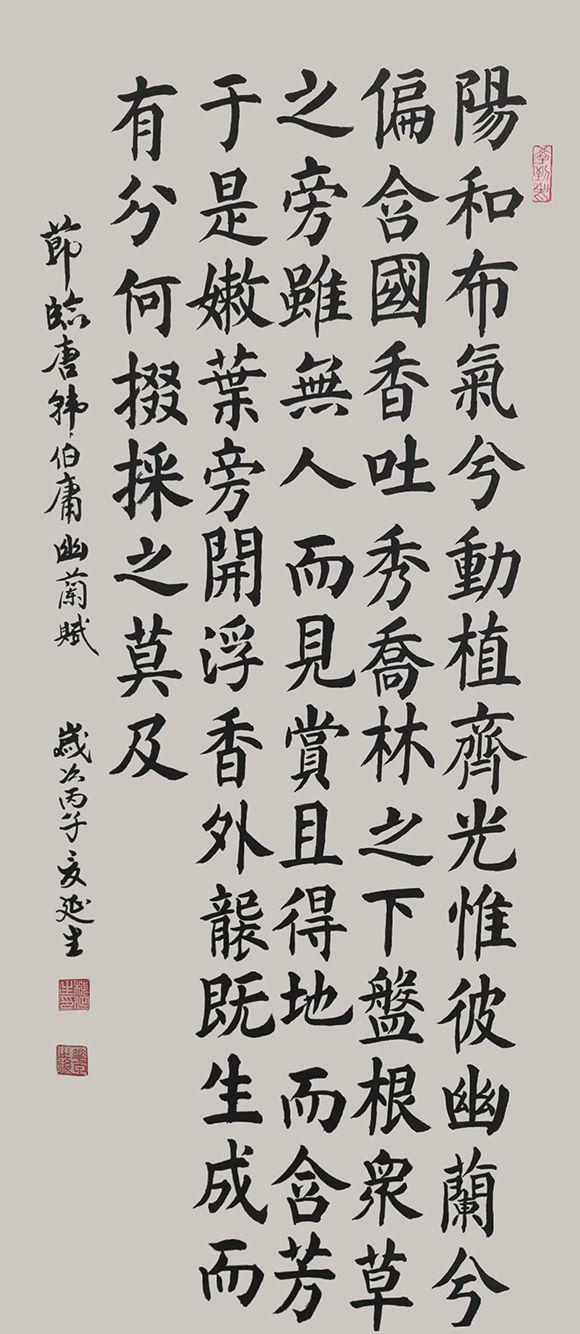 陽和布氣兮動植齊光惟彼幽蘭兮
偏含國香吐秀喬林之下盤根衆草
之旁雖無人而見賞且得地而含芳
于是嫩葉旁開浮香外襲既生成而
有分何掇採之莫及
節臨唐韓伯庸幽蘭賦 歲次丙午 延生